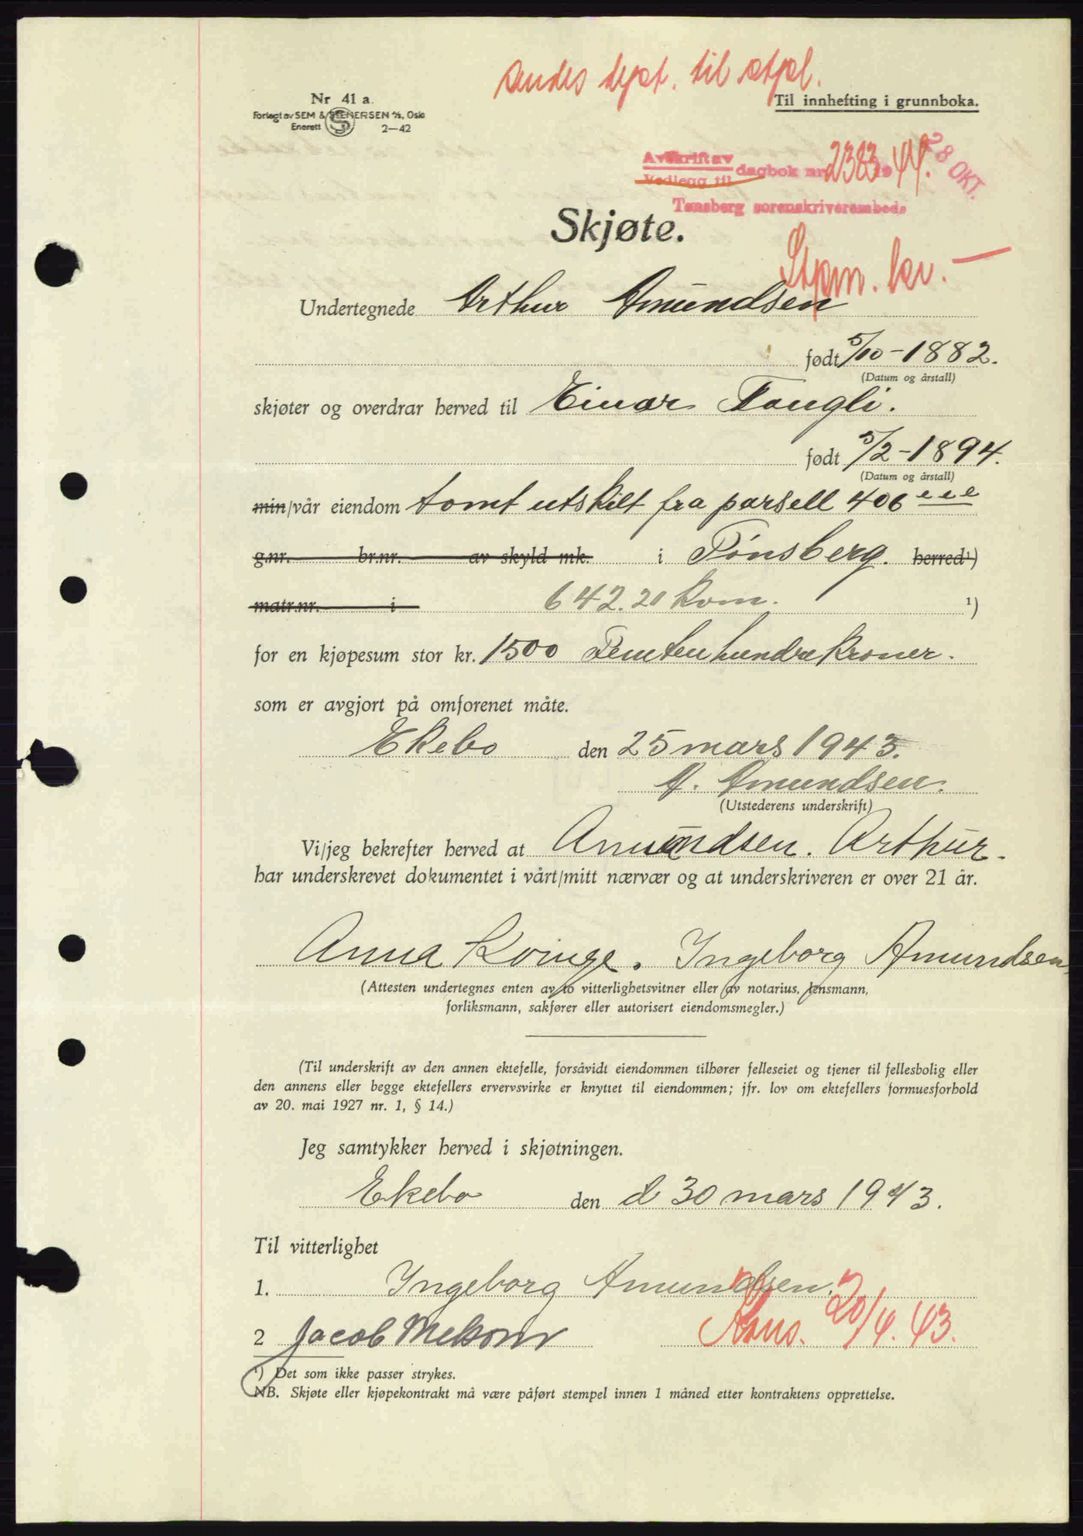 Nr 41 a.
Forlagt av SEM & STENERSEN A/S, Oslo
Enerett 2-42
til
Til innhefting i grunnboka.
Avskrift av
Vedlegg til dagbok nr. 2383 1944.
28 OKT.
Tønsberg sorenskriverembede
Skjøte.
Undertegnede Arthur Amundsen
født 5/10-1882.
(Datum og årstall)
skjøter og overdrar herved til Einar Tangli.
født 5/2-1894.
(Datum og årstall)
min/vår eiendom tomt utskilt fra parsell 406 eee
g.nr. br.nr. av skyld mk. i Tønsberg. herred¹)
matr.nr. i 642.20 kvm. ¹)
for en kjøpesum stor kr. 1500 Femtenhundrekroner.
som er avgjort på omforenet måte.
Ekebo den 25 mars 1943.
A. Amundsen.
(Utstederens underskrift)
Vi/jeg bekrefter herved at Amundsen. Arthur.
har underskrevet dokumentet i vårt/mitt nærvær og at underskriveren er over 21 år.
Anna Ingeborg Amundsen
(Attesten undertegnes enten av to vitterlighetsvitner eller av notarius, lensmann,
forliksmann, sakfører eller autorisert eiendomsmegler.)
(Til underskrift av den annen ektefelle, forsåvidt eiendommen tilhører felleseiet og tjener til fellesbolig eller
den annens eller begge ektefellers ervervsvirke er knyttet til eiendommen; jfr. lov om ektefellers formuesforhold
av 20. mai 1927 nr. 1, § 14.)
Jeg samtykker herved i skjøtningen.
Ekebo den d 30 mars 1943.
Til vitterlighet
1. Ingeborg Amundsen.
2 Jacob
20/4. 43.
¹) Det som ikke passer strykes.
NB. Skjøte eller kjøpekontrakt må være påført stempel innen 1 måned etter kontraktens opprettelse.